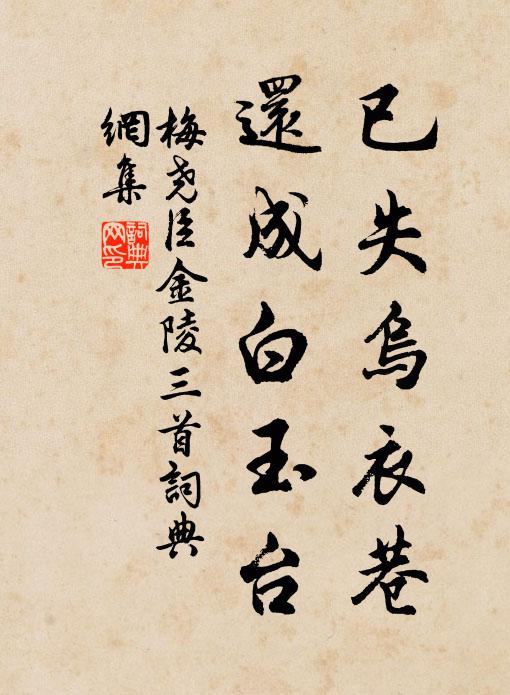 已失烏衣巷
還成白玉台
梅堯臣金陵三首詞典
網集
詞典
网印